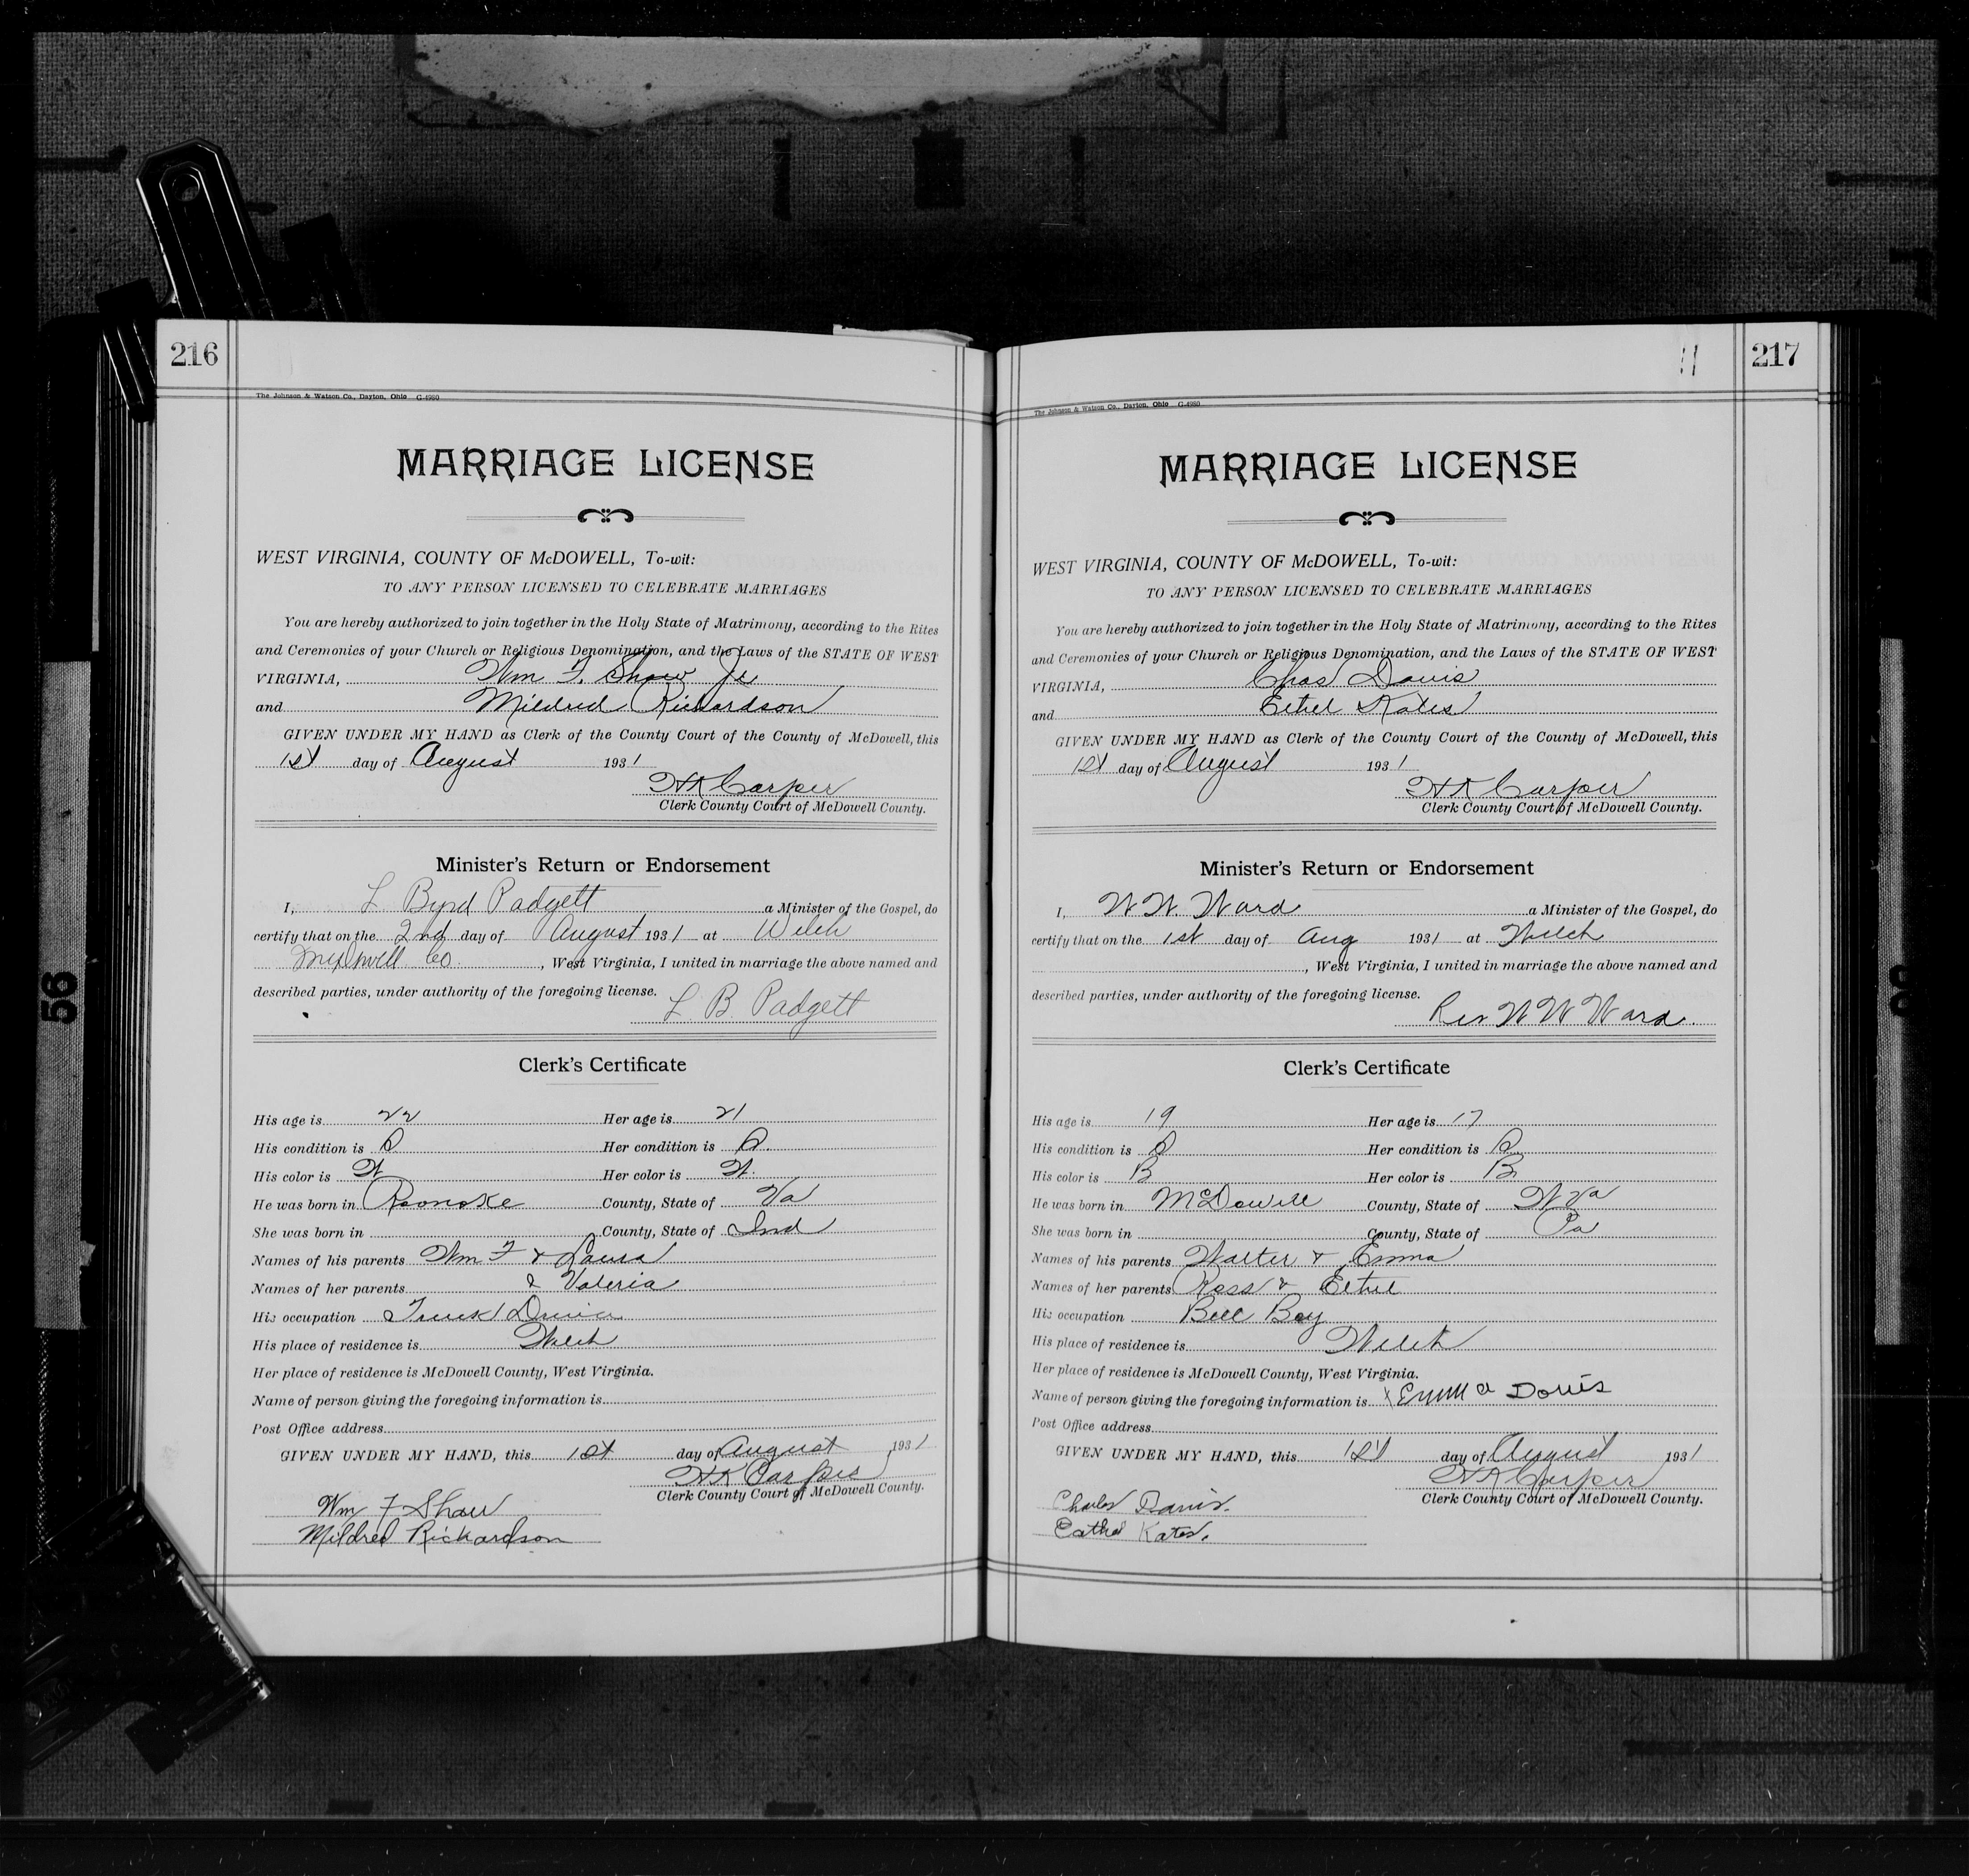 216
The Johnson & Watson Co., Dayton, Ohio G-4980
MARRIAGE LICENSE
WEST VIRGINIA, COUNTY OF McDOWELL, To-wit:
TO ANY PERSON LICENSED TO CELEBRATE MARRIAGES
You are hereby authorized to join together in the Holy State of Matrimony, according to the Rites
and Ceremonies of your Church or Religious Denomination, and the Laws of the STATE OF WEST
VIRGINIA, Wm F. Shaw Jr
and Mildred Richardson
GIVEN UNDER MY HAND as Clerk of the County Court of the County of McDowell, this
1st day of August 1931
Clerk County Court of McDowell County.
Minister's Return or Endorsement
I, L Byrd Padgett a Minister of the Gospel, do
certify that on the 2nd day of August 1931 at Welch
McDowell Co. , West Virginia, I united in marriage the above named and
described parties, under authority of the foregoing license.
L. B. Padgett
Clerk's Certificate
His age is 22 Her age is 21
His condition is S Her condition is S.
His color is W Her color is W.
He was born in Roanoke County, State of Va
She was born in County, State of Ind
Names of his parents Wm F & Laura
Names of her parents & Valeria
His occupation Truck Driver
His place of residence is Welch
Her place of residence is McDowell County, West Virginia.
Name of person giving the foregoing information is
Post Office address
GIVEN UNDER MY HAND, this 1st day of August 1931
H K Carper
Clerk County Court of McDowell County.
Wm F Shaw
Mildred Richardson
217
11
The Johnson & Watson Co., Dayton, Ohio G-4980
MARRIAGE LICENSE
WEST VIRGINIA, COUNTY OF McDOWELL, To-wit:
TO ANY PERSON LICENSED TO CELEBRATE MARRIAGES
You are hereby authorized to join together in the Holy State of Matrimony, according to the Rites
and Ceremonies of your Church or Religious Denomination, and the Laws of the STATE OF WEST
VIRGINIA, Chas Davis
and Ethel Kates
GIVEN UNDER MY HAND as Clerk of the County Court of the County of McDowell, this
1st day of August 1931
H K Carper
Clerk County Court of McDowell County.
Minister's Return or Endorsement
I, W. W. Ward a Minister of the Gospel, do
certify that on the 1st day of Aug 1931 at Welch
, West Virginia, I united in marriage the above named and
described parties, under authority of the foregoing license.
Rev W W Ward.
Clerk's Certificate
His age is 19 Her age is 17
His condition is S Her condition is S
His color is B Her color is B
He was born in McDowell County, State of W Va
She was born in County, State of Pa
Names of his parents Walter & Emma
Names of her parents Ross & Ethel
His occupation Bell Boy
His place of residence is Welch
Her place of residence is McDowell County, West Virginia.
Name of person giving the foregoing information is Emma
Post Office address
GIVEN UNDER MY HAND, this 1st day of August 1931
H K Carper
Clerk County Court of McDowell County.
Charles Davis.
Kates.
56